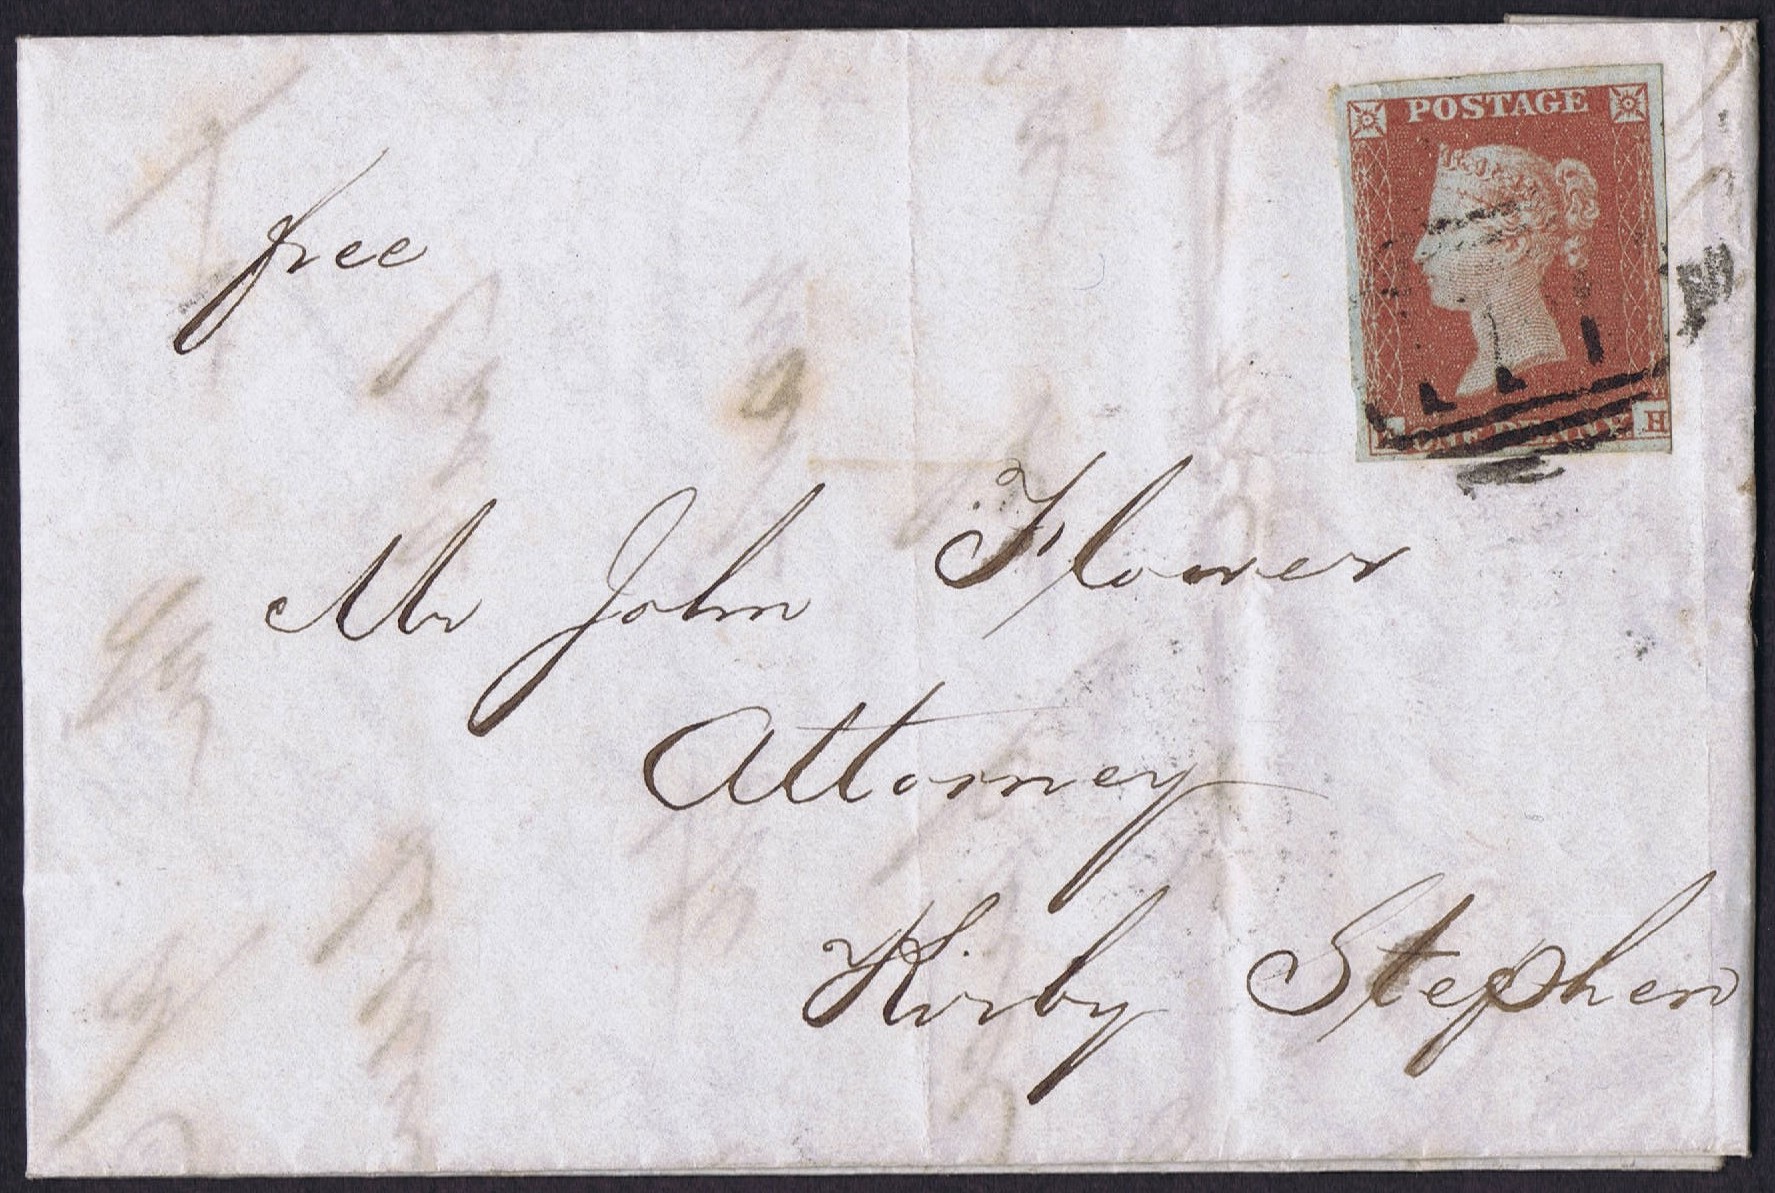 POSTAGE
free
ONE PENNY H
Mr John Flower
Attorney
Kirby Stephen